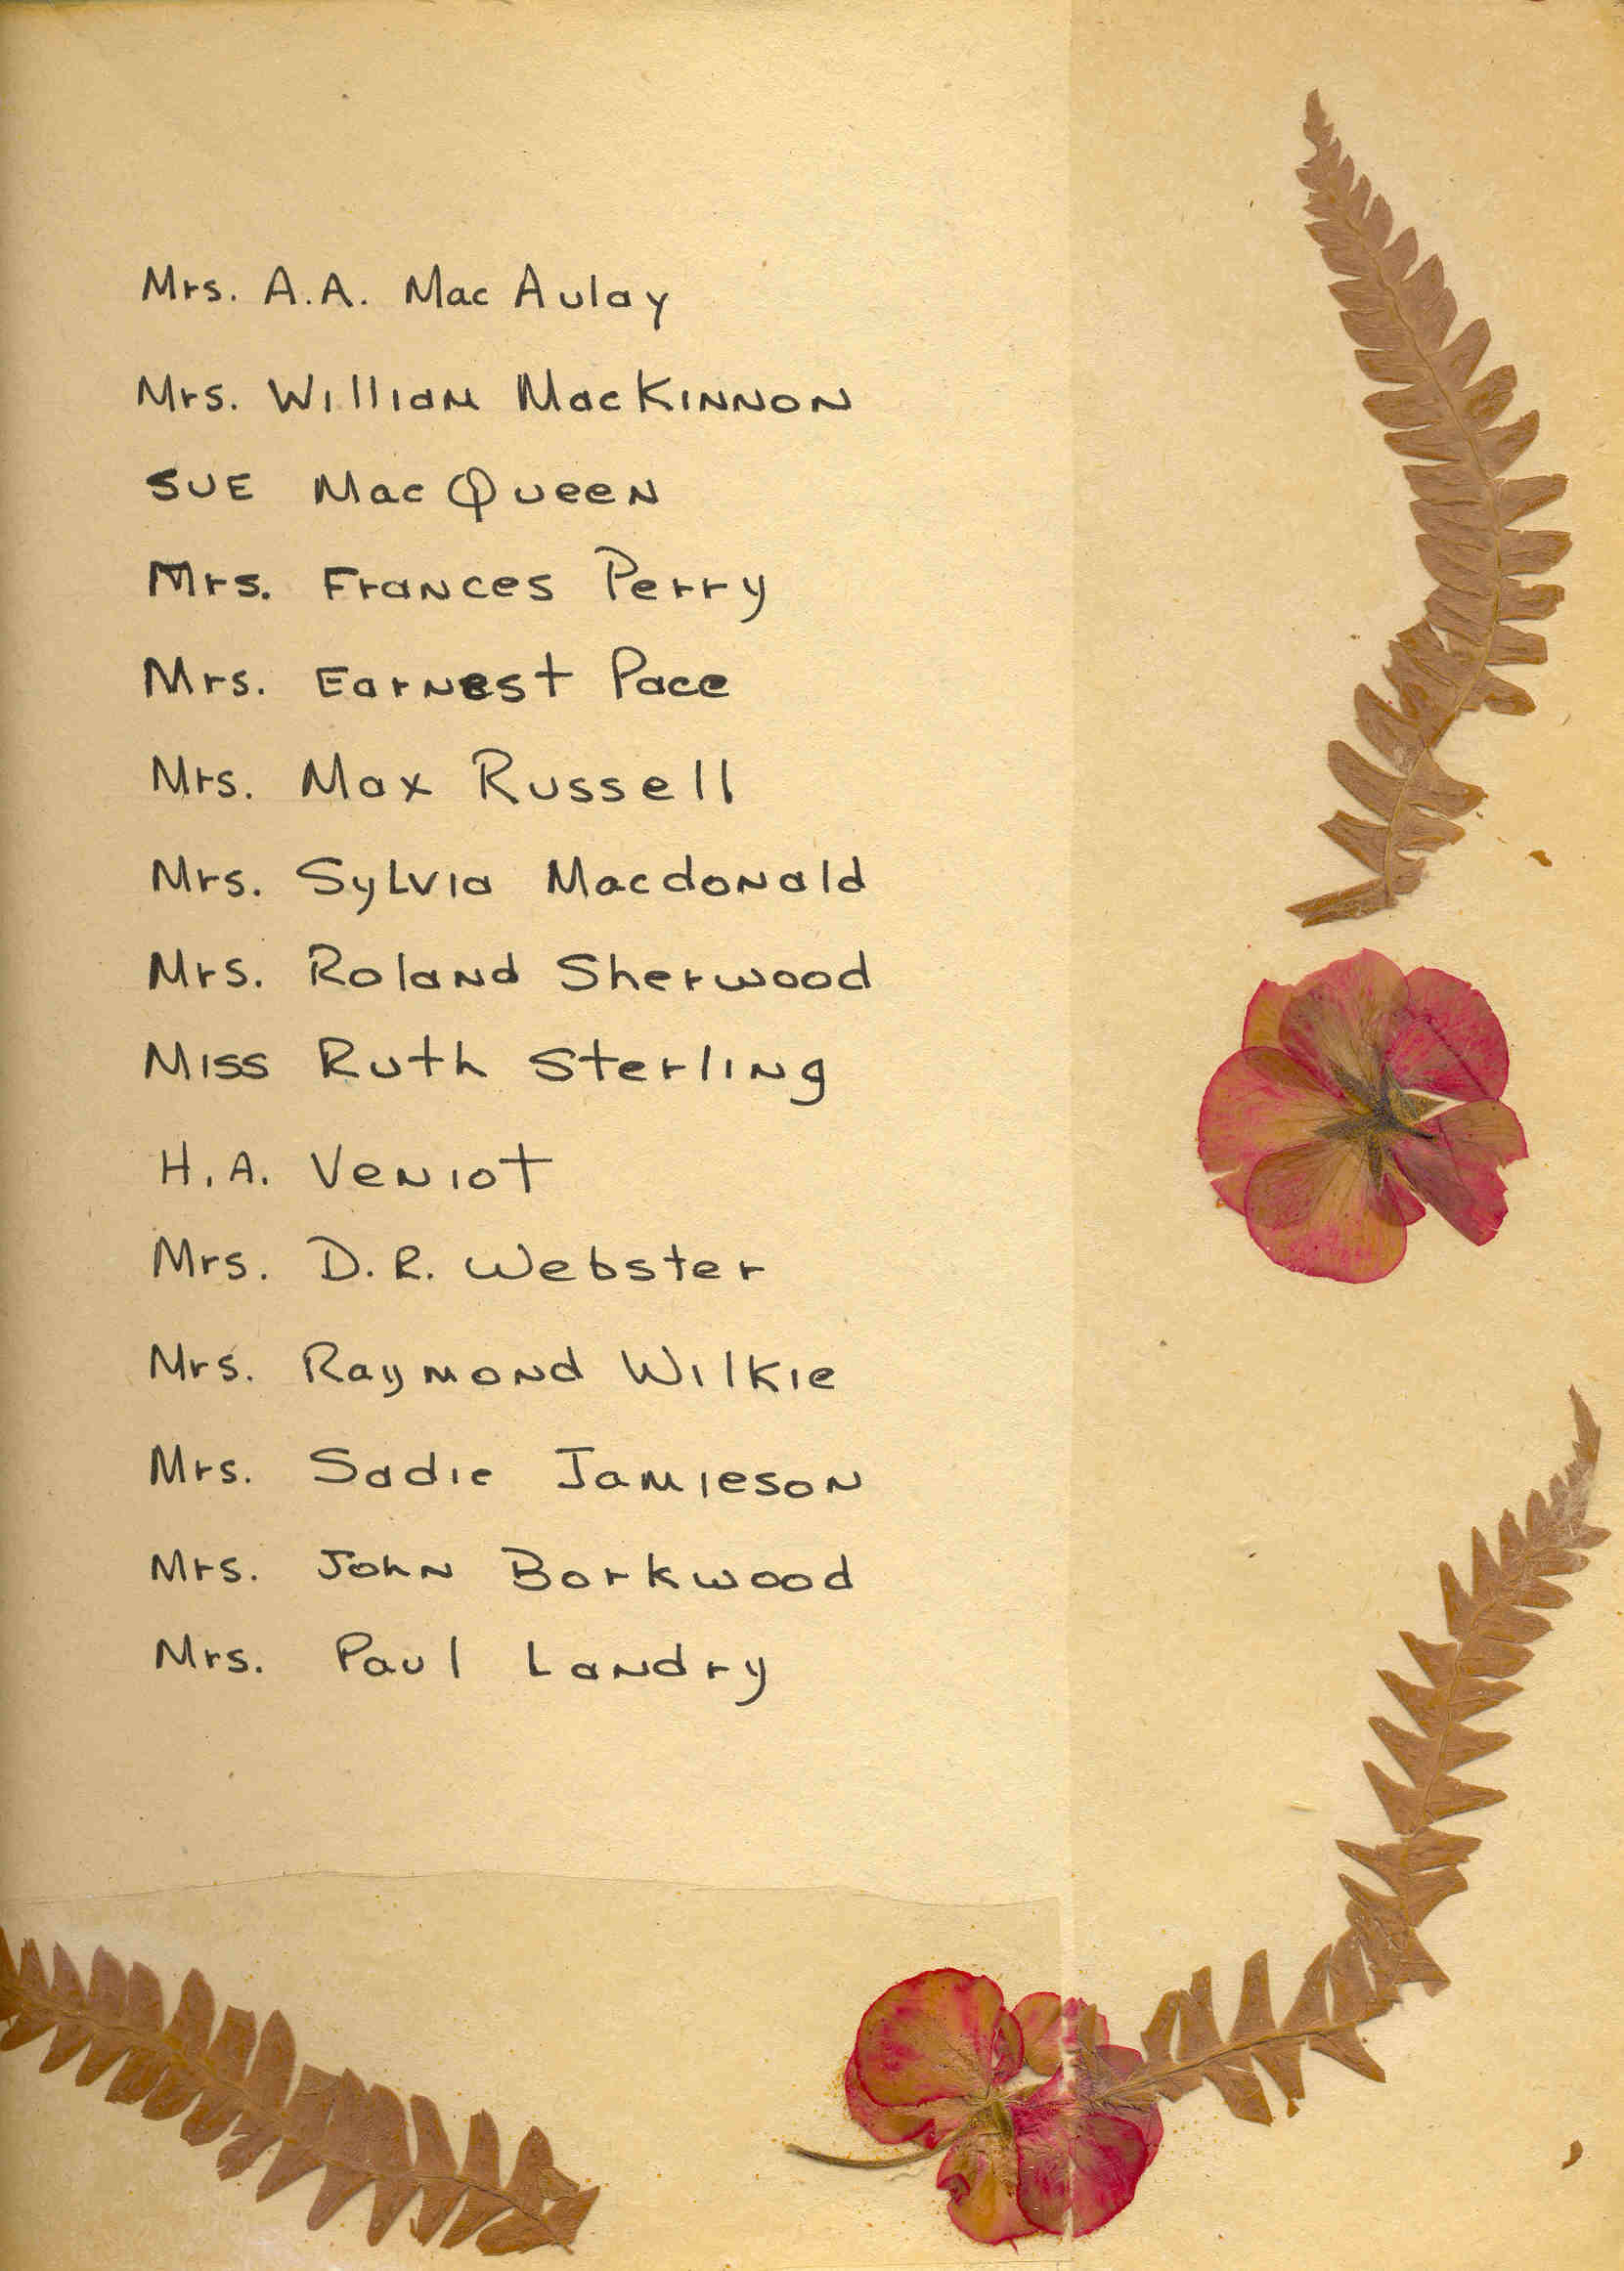 Mrs. A.A. Mac Aulay
Mrs. William MacKinnon
Sue MacQueen
Mrs. Frances Perry
Mrs. Earnest Pace
Mrs. Max Russell
Mrs. Sylvia Macdonald
Mrs. Roland Sherwood
Miss Ruth Sterling
H.A. Veniot
Mrs. D.R. Webster
Mrs. Raymond Wilkie
Mrs. Sadie Jamieson
Mrs. John Borkwood
Mrs. Paul Landry